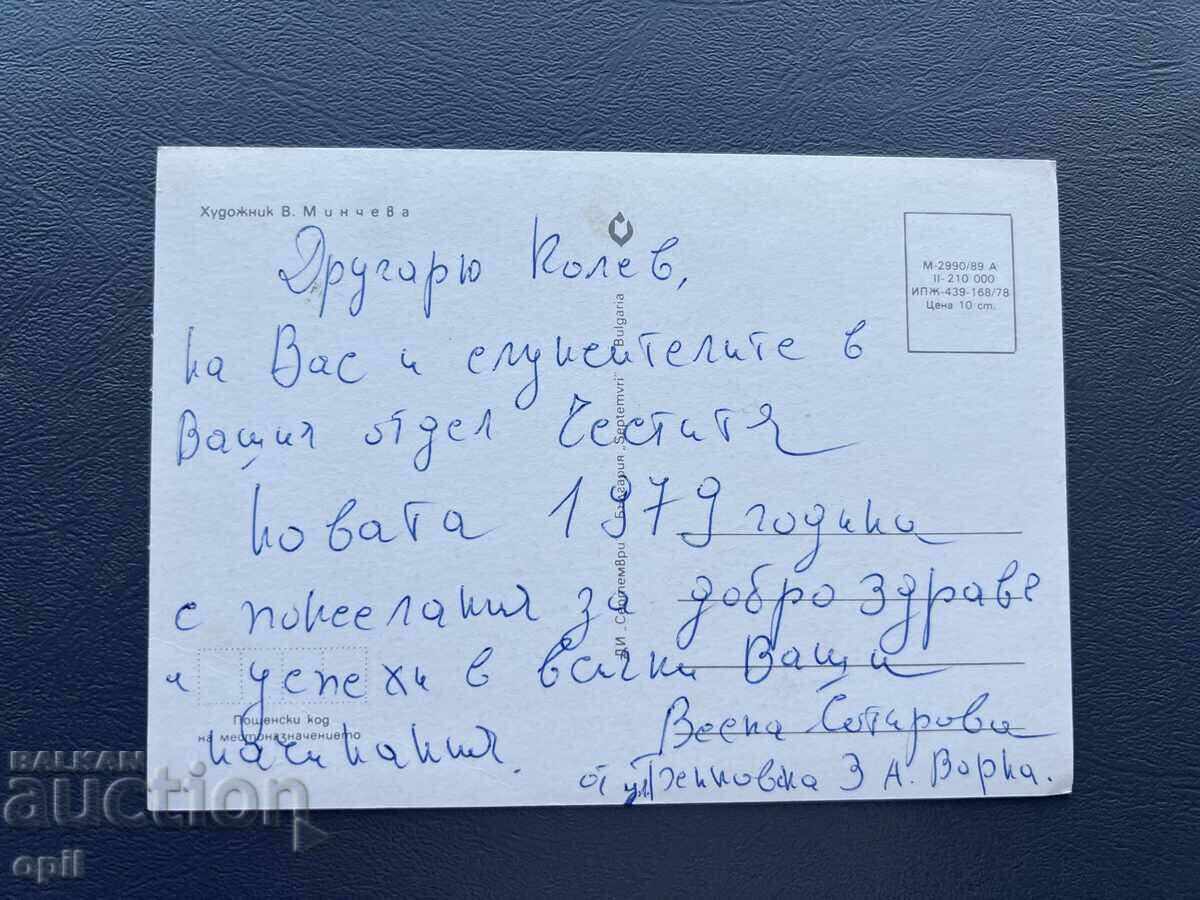 Художник В. Минчева
Другарю Колев,
на Вас и служителите в
Вашия отдел Честитя
новата 1979 година
с пожелания за добро здраве
и успехи в всички Ваши
начинания.
Весна Сотирова
от ул. 3 А. Варна.
М-2990/89 А
II-210 000
ИПЖ-439-168/78
Цена 10 ст.
ДИ „Септември" България „Septemvri" Bulgaria
Пощенски код
на местоназначението
BALKAN
auction
opil